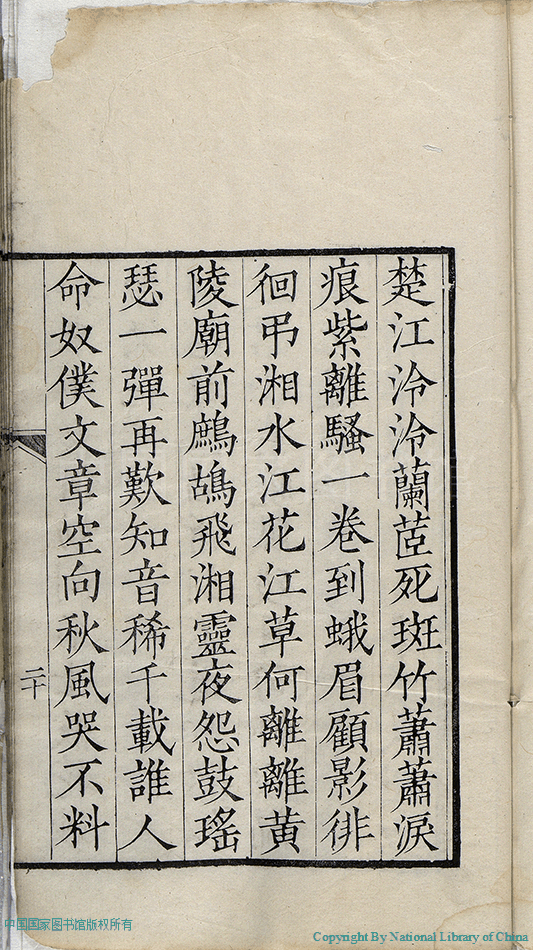 楚江泠泠蘭茝死斑竹蕭蕭淚
痕紫離騷一卷到蛾眉顧影徘
徊弔湘水江花江草何離離黃
陵廟前鷓鴣飛湘靈夜怨鼓瑤
瑟一彈再歎知音稀千載誰人
命奴僕文章空向秋風哭不料
二十
中国国家图书馆版权所有
Copyright By National Library of China